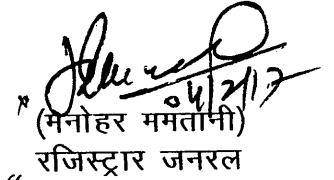 04/2/17
(मनोहर ममतानी)
रजिस्ट्रार जनरल